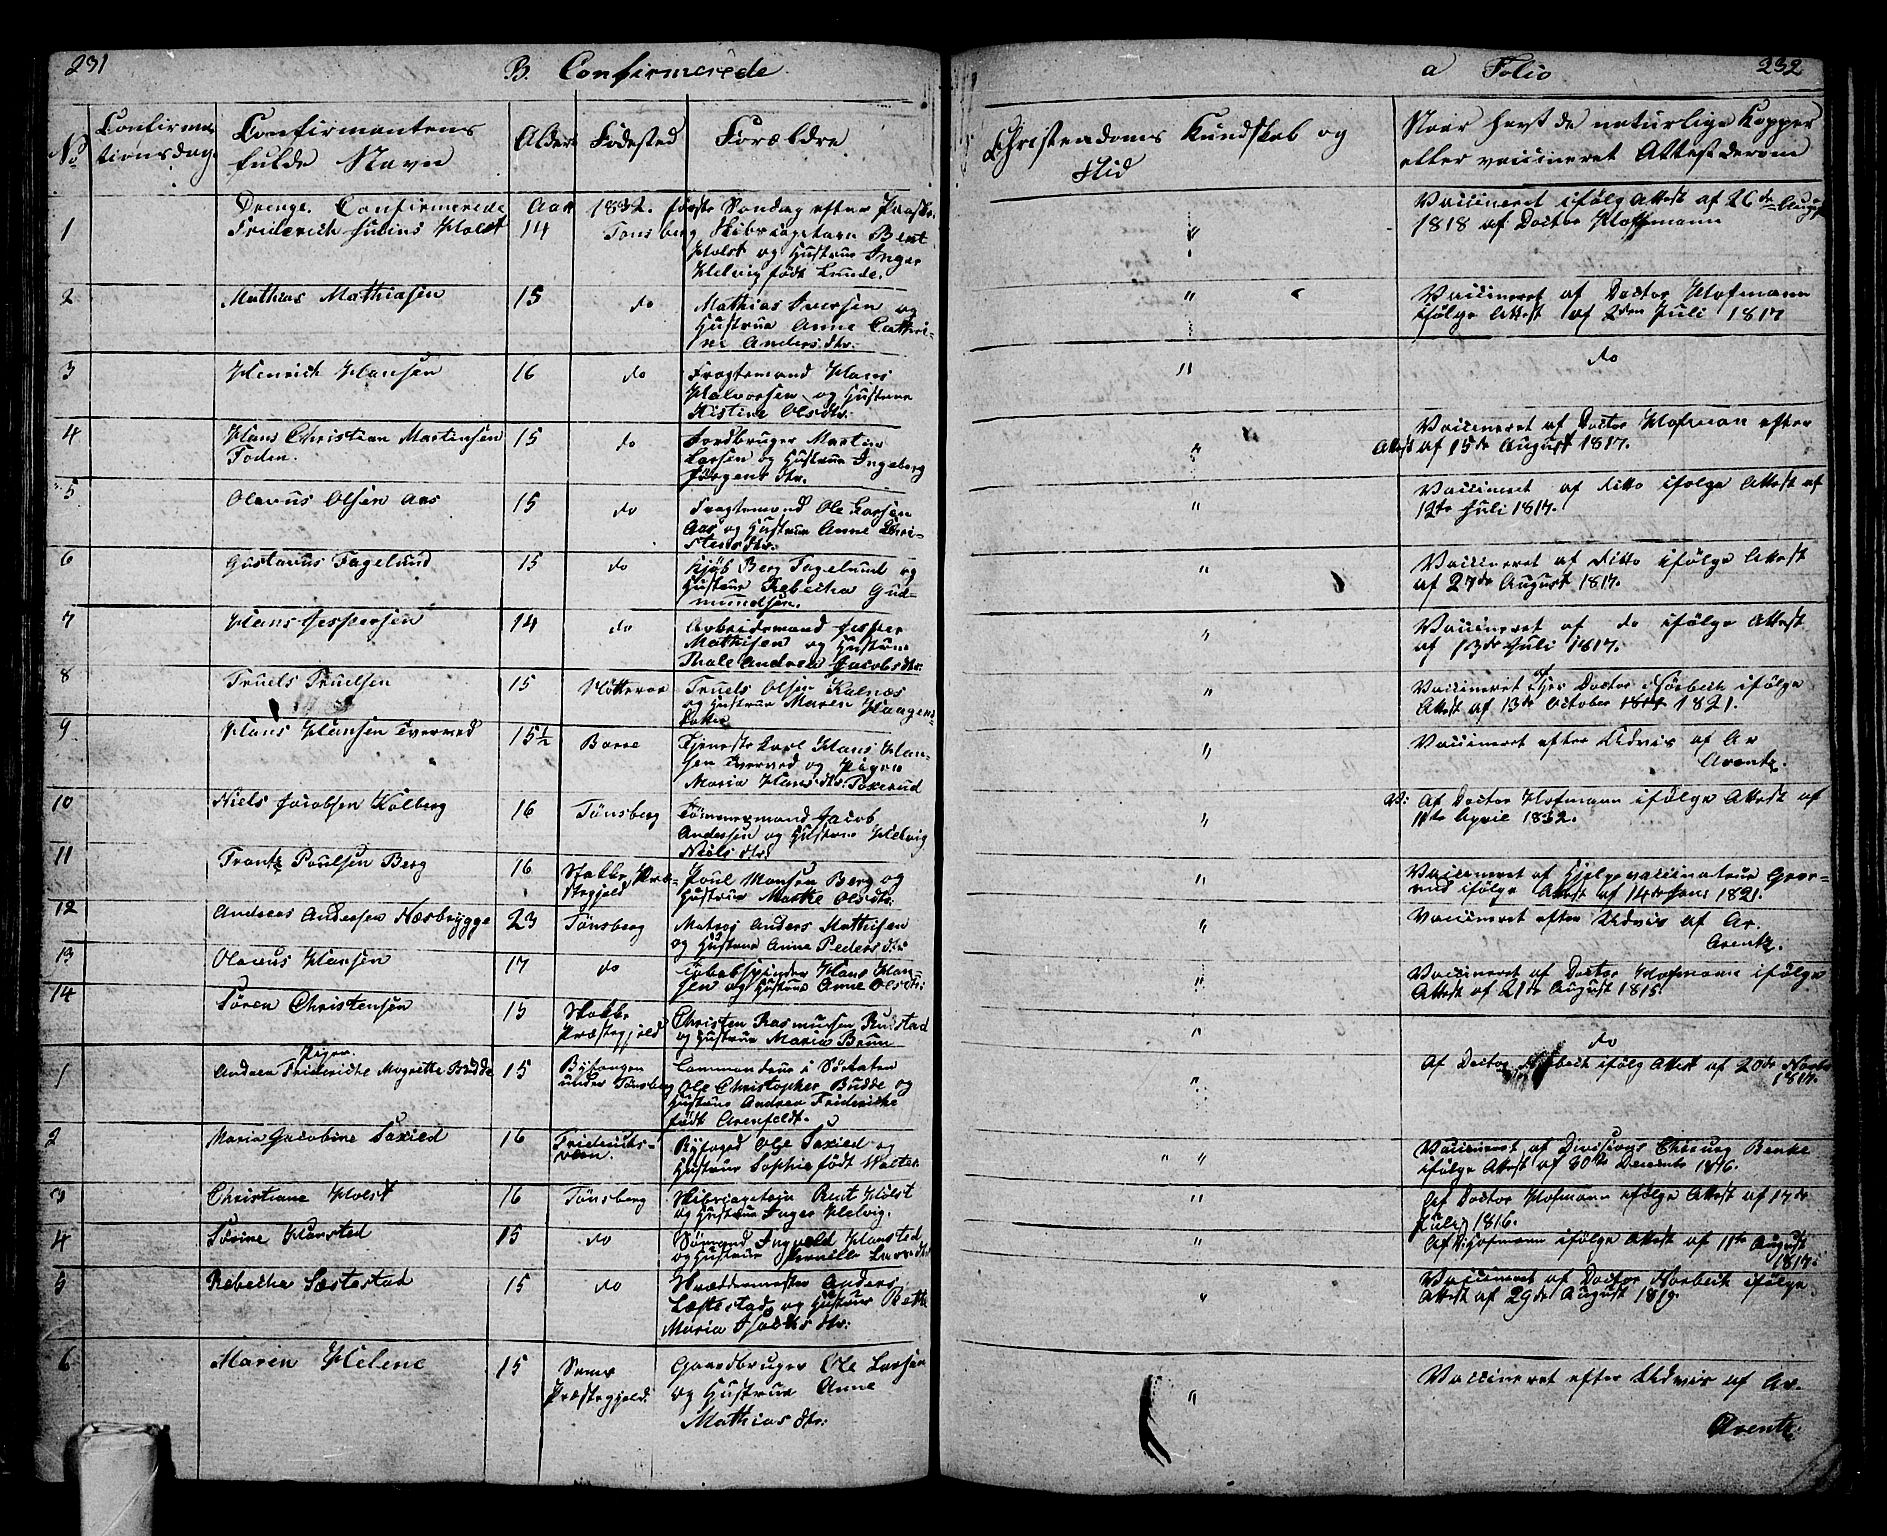 231
B. Confirmerede
a Folio
232
No
Confirma-
tionsdag
Confirmantens
fulde Navn
Alder
Fødested
Forældre
Christendoms Kundskab og
Flid
Naar havt de naturlige Kopper
eller vaccineret Attest derom
Drenge. Confirmerede Aar 1832. første Søndag efter Paaske
1 Friderich Julius Holst 14 Tønsberg Skibscapitain Bent
Holst og Hustrue Inger
Helvig født Lunde.
" Vaccineret ifølg Attest af 26de August
1818 af Doctor Hoffmann
2 Mathias Mathiasen 15 do Mathias Iversen og
Hustrue Anne Cathri-
ne Andersdtr:
" Vaccineret af Doctor Hofmann
ifølge Attest af 2den Juli 1817
3 Henrich Hansen 16 do Fragtemand Hans
Halvorsen og Hustrue
Kistine Olsdtr:
" do
4 Hans Christian Martinsen 15 do Jordbruger Martin
Foden. Larsen og Hustrue Ingeborg
Jørgensdtr.
" Vaccineret af Doctor Hofman efter
Attest af 15de August 1817.
5 Olavus Olsen Aas 15 do Fragtemand Ole Larsen
Aas og Hustrue Anne Chri-
stensdtr:
" Vaccineret af ditto ifølge Attest af
12te Juli 1817.
6 Gustavus Fagelund 15 do Kjøb Berg Fagelund og
Hustrue Rebecha Gud-
mundsen.
" Vaccineret af ditto ifølge Attest
af 27de August 1817.
7 Hans Jespersen 14 do Arbeidsmand Jesper
Mathisen og Hustrue
Thale Andrea Jacobsdtr:
" Vaccineret af do ifølge Attest
af 13de Juli 1817.
8 Truels Truelsen 15 Nøtterøe Truels Olsen Kalnæs
og Hustrue Maren Haagens
datter
" Vaccineret af Doctor Norbech ifølge
Attest af 13de October 1821.
9 Hans Hansen Tverved 15½ Borre Tjenestekarl Hans Han-
sen Tverved og Pigen
Maria Hansdtr: Toxerud
" Vaccineret efter Udvis af Ar
Arentz.
10 Niels Jacobsen Kolberg 16 Tønsberg Tømmermand Jacob
Andersen og Hustrue Helvig
Nielsdtr:
" V: Af Doctor Hofmann ifølge Attest af
11te April 1832.
11 Frantz Poulsen Berg 16 Stokke Præ-
stegjeld Poul Monsen Berg og
Hustrue Marthe Olsdtr:
" Vaccineret af Hjelpevaccinateur Grør-
rud ifølge Attest af 14de Janr 1821.
12 Andreas Andersen Næsbrygge 23 Tønsberg Matros Anders Mathisen
og Hustrue Anne Pedersdtr
" Vaccineret efter Udvis af Ar.
Arentz.
13 Olavus Hansen 17 do Tobakspinder Hans Han-
sen og Hustrue Anne Olsdtr:
" Vaccineret af Doctor Hofmann ifølge
Attest af 21de August 1815.
14 Søren Christensen 15 Stokke
Præstegjeld Christen Rasmussen Rustad
og Hustrue Maria Brun
" do
Piger.
1 Andrea Frideriche Magrethe Budde 15 Byfougen
under Tønsberg Commandeur i Søetaten
Ole Christopher Budde og
Hustrue Andrea Friderikke
født Arenfeldt.
" Af Doctor Norbech ifølg Attest af 20de Novbr
1817.
2 Maria Jacobine Saxild 16 Friderichs-
værn. Byfoged Ole Saxild og
Hustrue Sophie født Walter
" " Vaccineret af Divisions Chirurg Benke
ifølge Attest af 30te December 1816.
3 Christiane Holst 16 Tønsberg Skibscapitain Bent Holst
og Hustrue Inger Helvig.
" Af Doctor Hofmann ifølge Attest af 17de
Juli 1816.
4 Sørine Hansted 15 do Sømand Ingvald Hansted
og Hustrue Pernille Larsdtr
" Af D: Hofmann ifølge Attest af 11te August
1817.
5 Rebecka Sæstestad 15 do Skræddermester Anders
Læstestad og Hustrue Bethe
Maria Isachsdtr:
" Vaccineret af Doctor Norbech ifølge
Attest af 29de August 1819.
6 Maren Helene 15 Sems
Præstegjeld. Gaardbruger Ole Larsen
og Hustrue Anne
Mathiasdtr:
" Vaccineret efter Udvis af Ar.
Arentz.